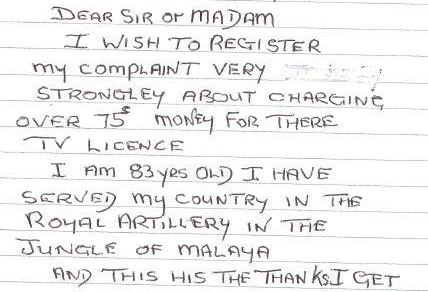 DEAR SIR or MADAM
I WISH TO REGISTER
my COMPLAINT VERY
STRONGLEY ABOUT CHARGING
OVER 75s MONEY FOR THERE
TV LICENCE
I AM 83 yRS OLD I HAVE
SERVED my COUNTRY IN THE
ROYAL ARTILLERY IN THE
JUNGLE OF MALAYA
AND THIS HIS THE THANKS I GET